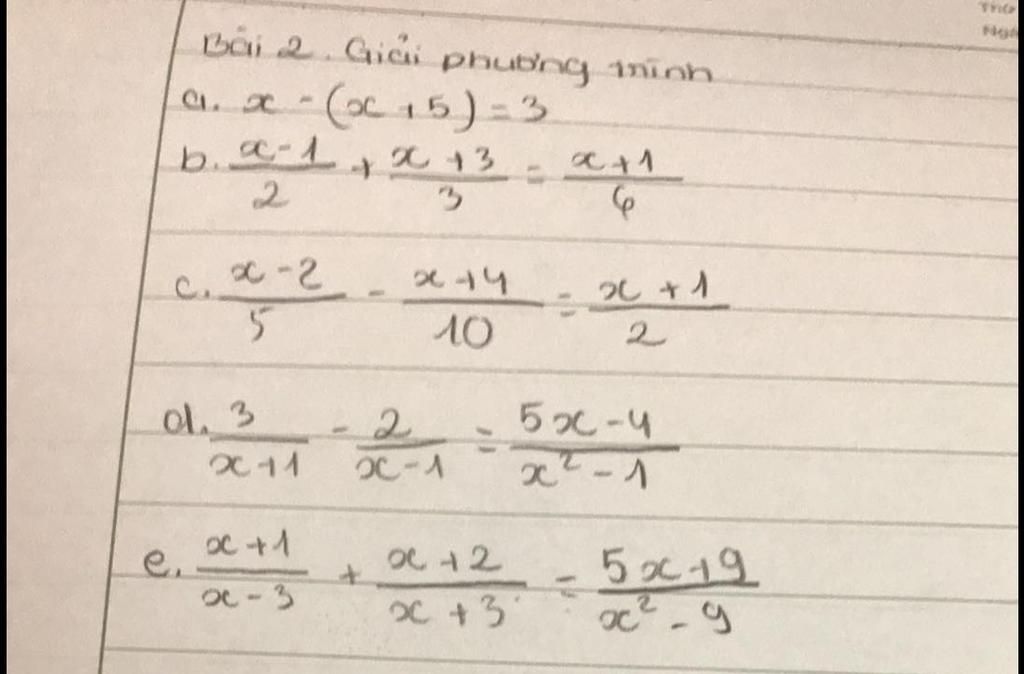 Bài 2. Giải phương trình
a. x - (x + 5) = 3
b. (x-1)/2 + (x+3)/3 = (x+1)/6
c. (x-2)/5 - (x+4)/10 = (x+1)/2
d. 3/(x+1) - 2/(x-1) = (5x-4)/(x²-1)
e. (x+1)/(x-3) + (x+2)/(x+3) = (5x+9)/(x²-9)